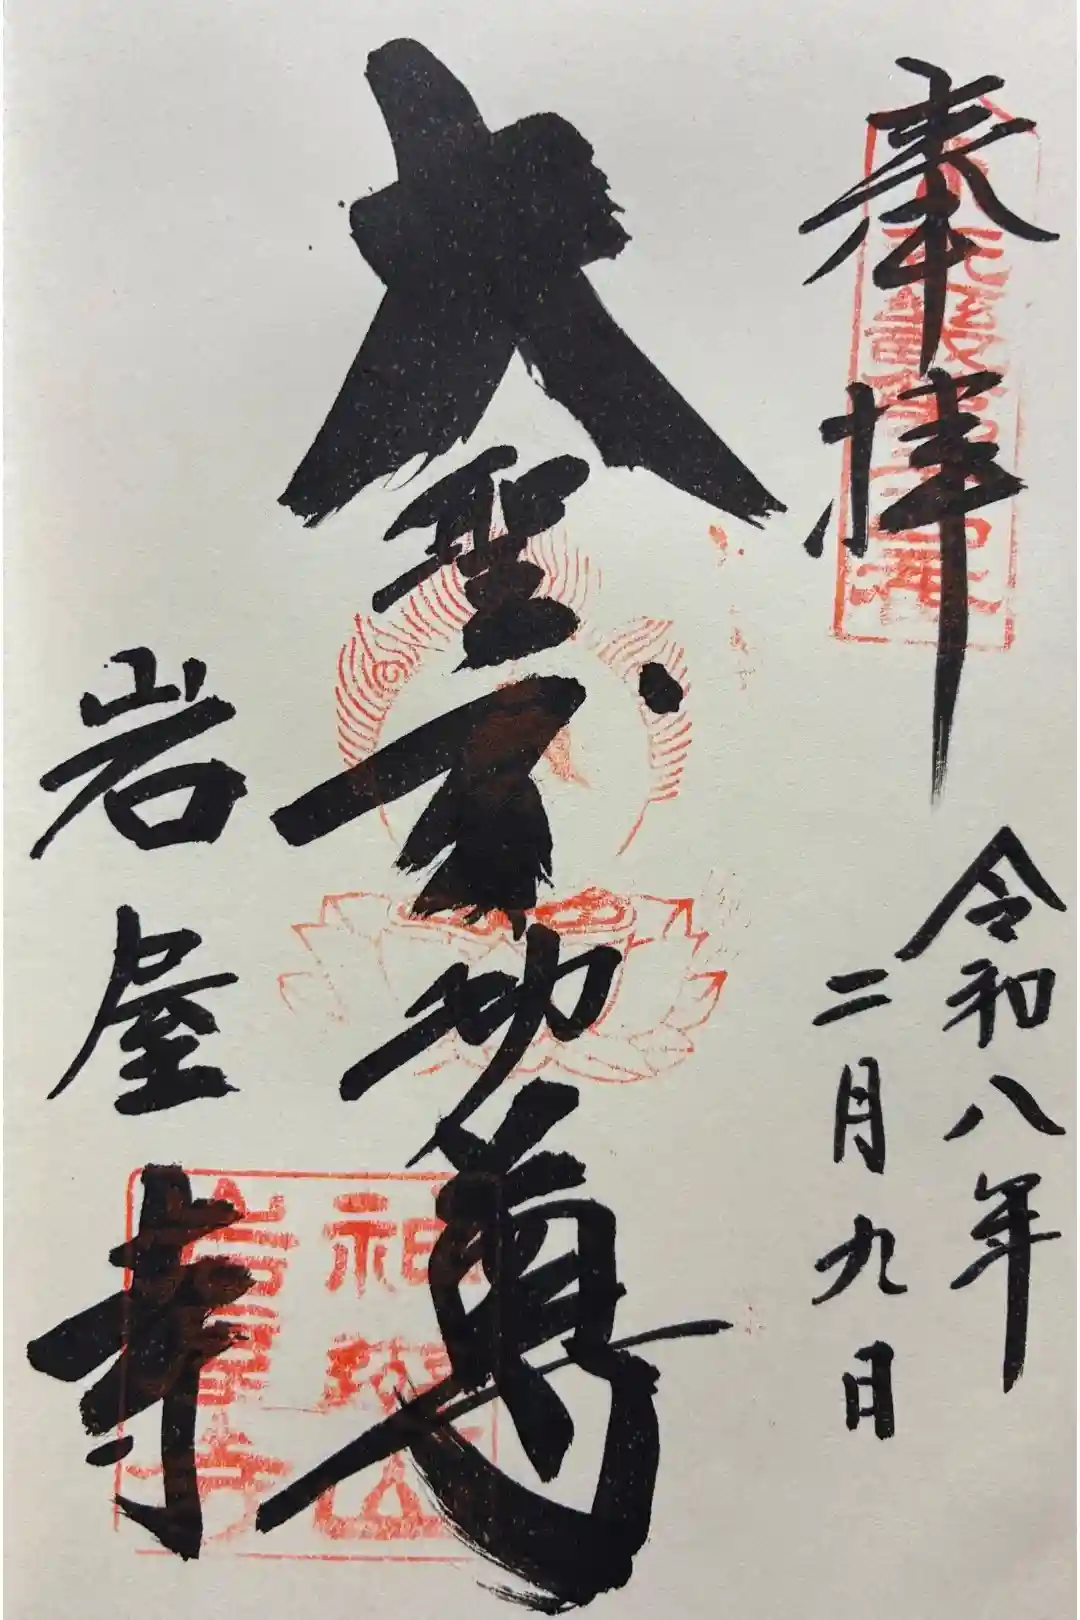 奉拝
令和八年
二月九日
大聖不動尊
岩屋寺
岩屋寺